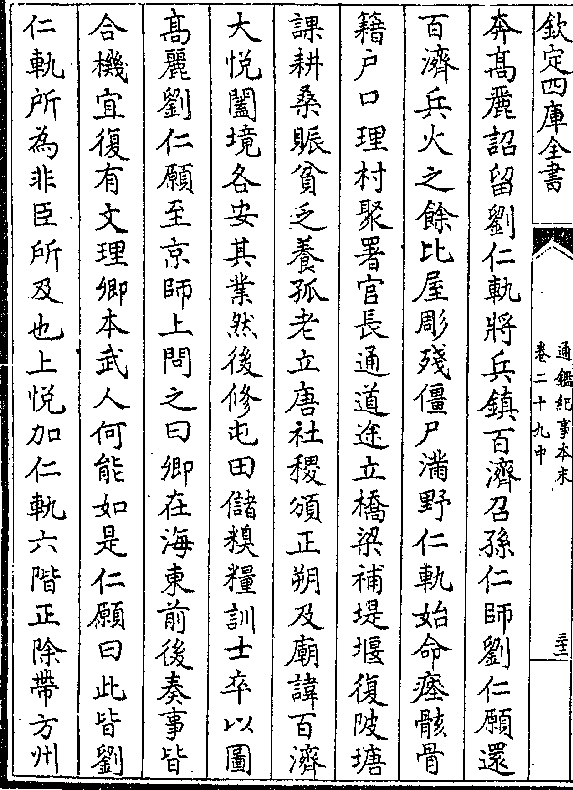 欽定四庫全書
通鑑紀事本末
卷二十九中
奔髙麗詔留劉仁軌將兵鎮百濟召孫仁師劉仁願還
百濟兵火之餘比屋彫殘僵尸滿野仁軌始命瘞骸骨
籍户口理村聚署官長通道塗立橋梁補堤堰復陂塘
課耕桑賑貧乏養孤老立唐社稷頒正朔及廟諱百濟
大悅闔境各安其業然後修屯田儲糗糧訓士卒以圖
髙麗劉仁願至京師上問之曰卿在海東前後奏事皆
合機宜復有文理卿本武人何能如是仁願曰此皆劉
仁軌所為非臣所及也上悅加仁軌六階正除帶方州